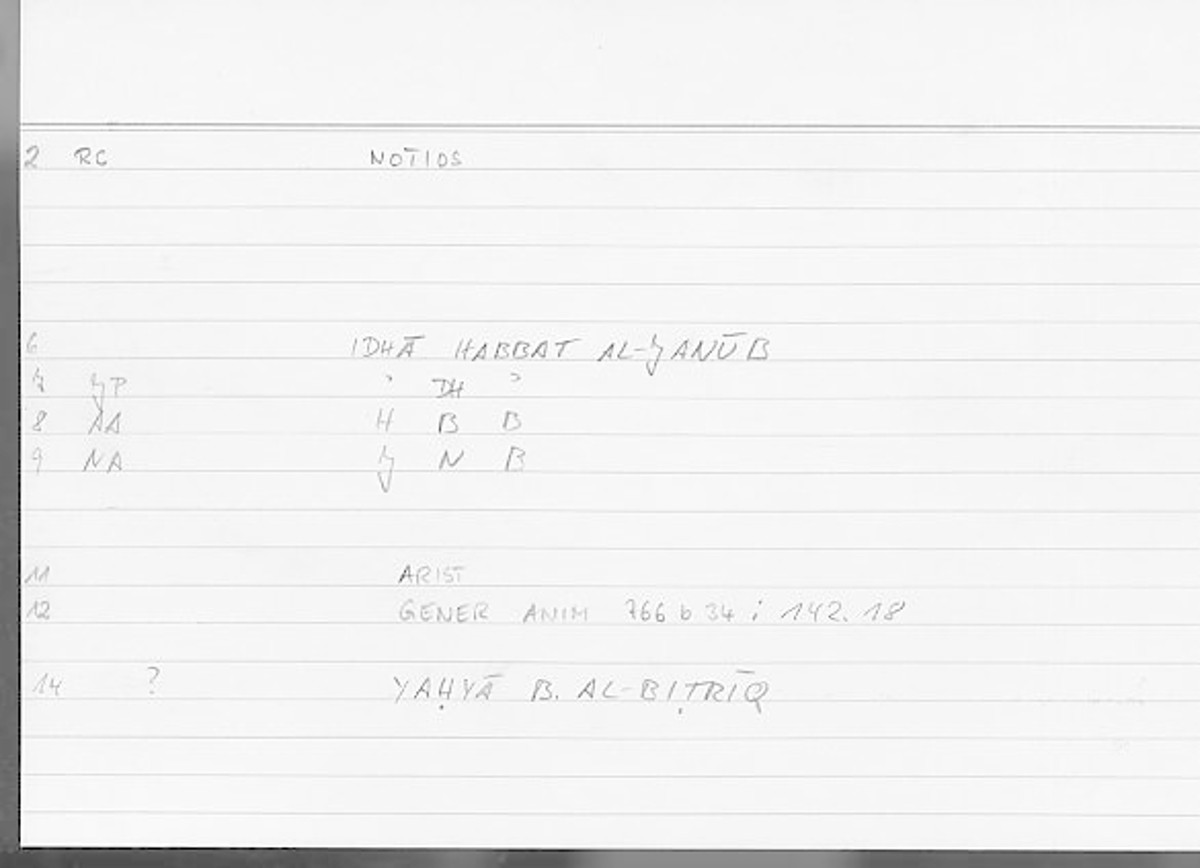 2 RC NŌTIOS
6 IDHĀ HABBAT AL-ǦANŪB
7 ǦP ʾ DH ʾ
8 AA H B B
9 NA Ǧ N B
11 ARIST
12 GENER ANIM 766 b 34 ; 142.18
14 ? YAḤYĀ B. AL-BIṬRĪQ